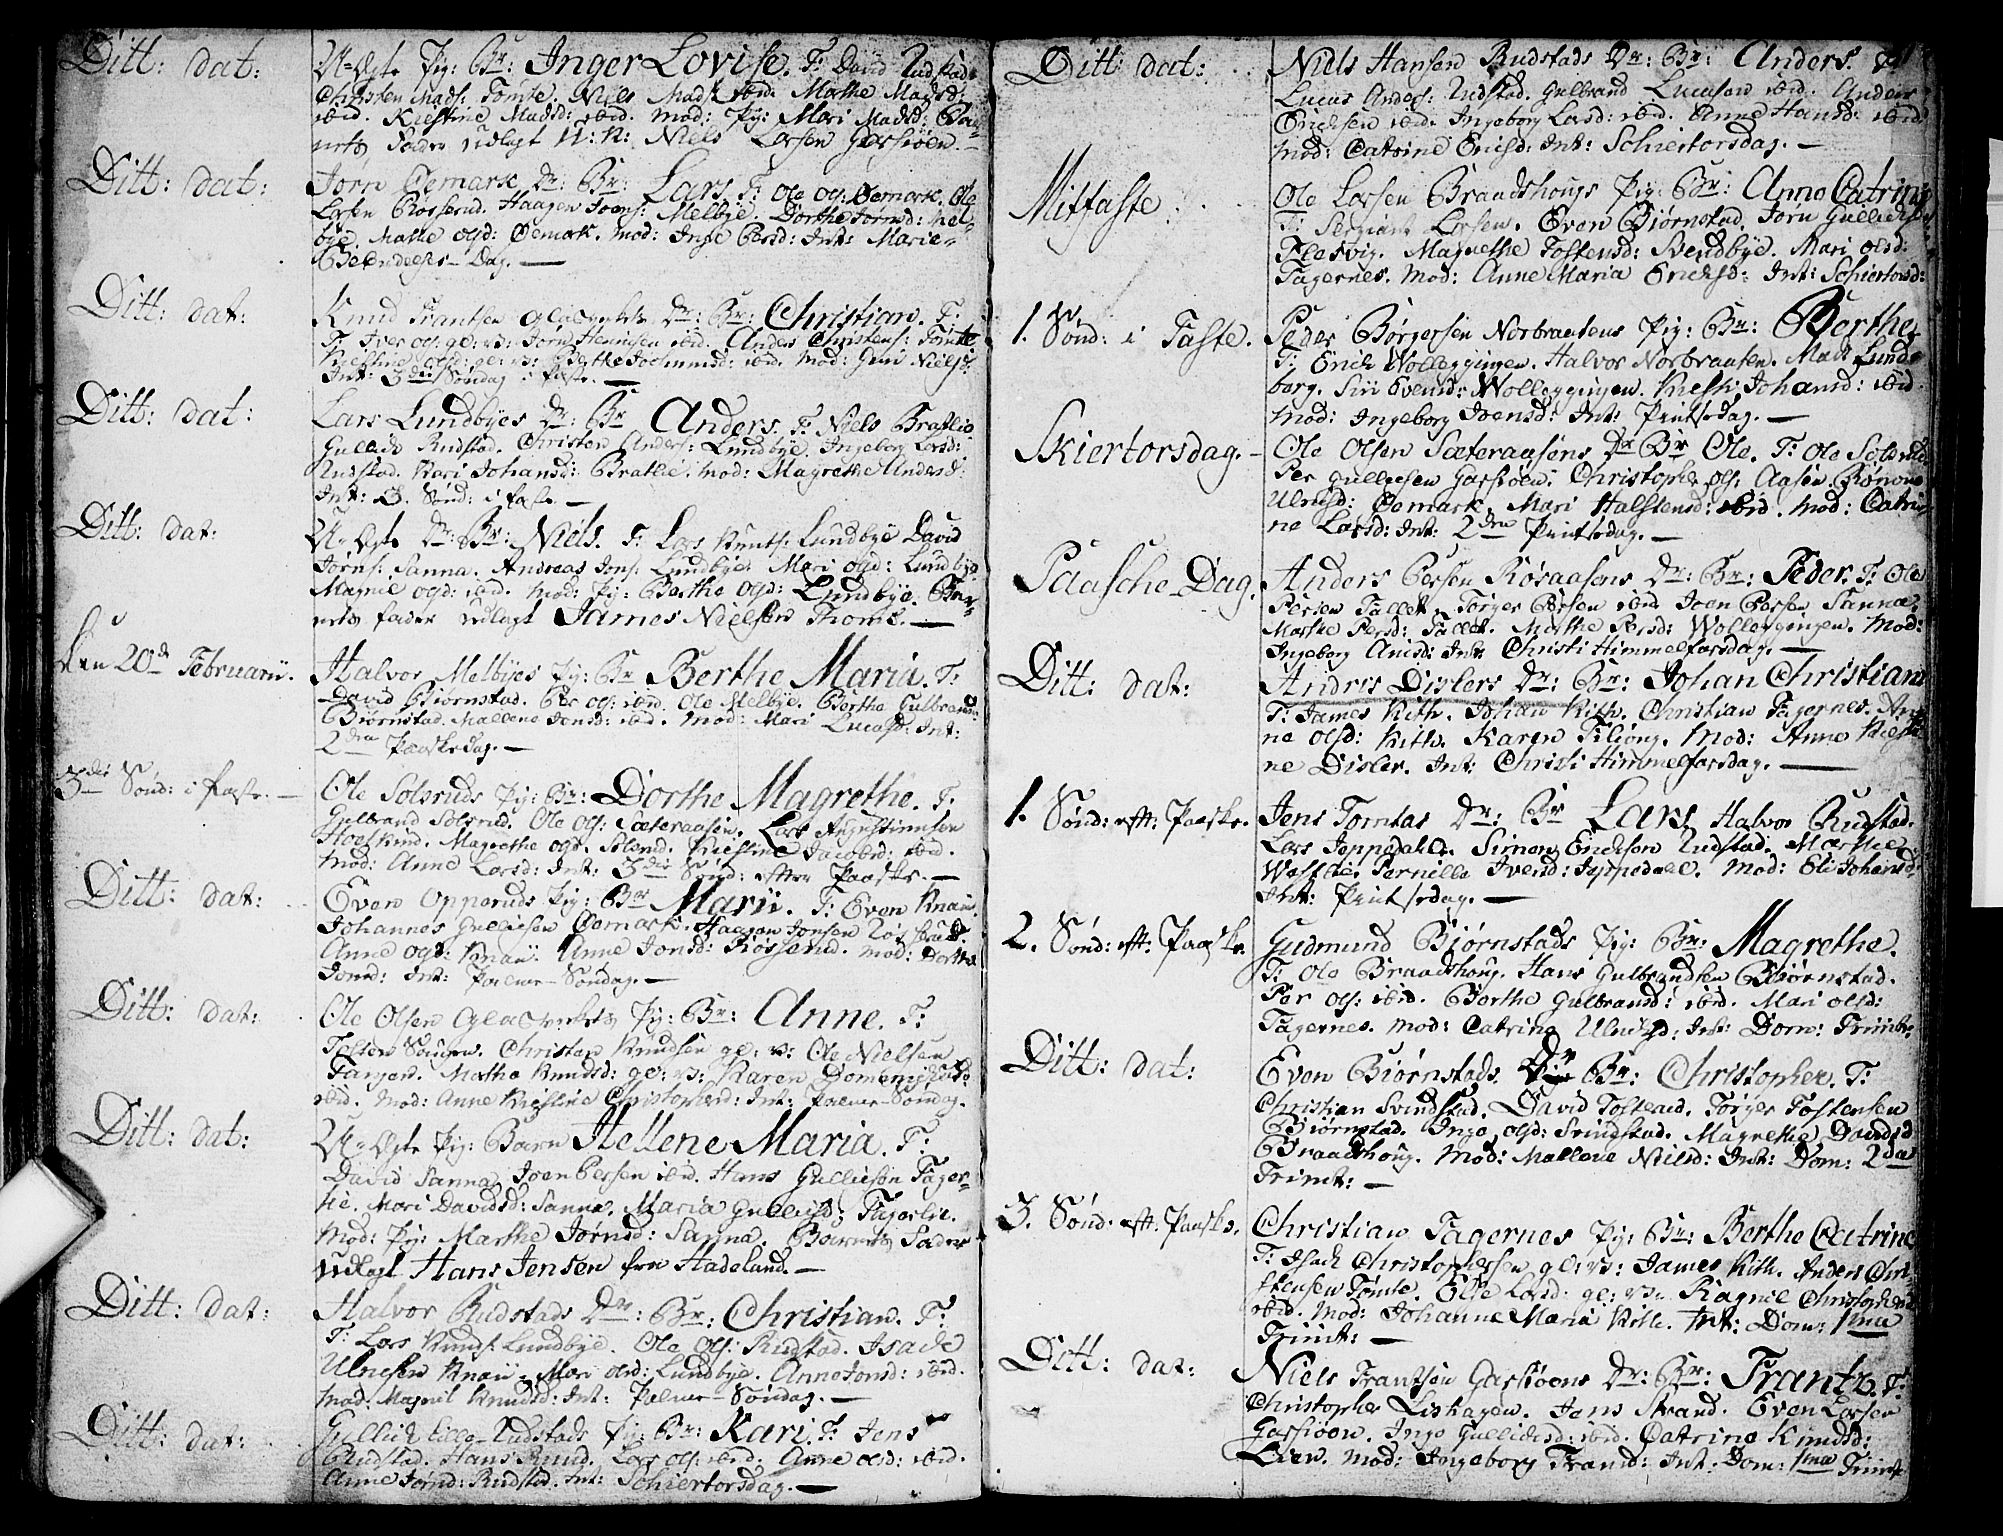 Ditt: dat: U-Egte Pg: Br: Inger Lovise. F: David Rudstad
Christen Mads: Tomte. Niels Mads: ibid. Marthe Madsd:
ibid. Kiestine Madsd: ibid. Mod: Pg: Mari Madsd: Bar-
nets Fader udlagt U: N: Niels Larsen Gassiøen. —
Ditt: dat: Jørn Øemark Dr: Br: Lars. F: Ole Ols: Øemark. Ole
Larsen Røsserud. Haagen Joens: Melbye. Dorthe Jørnsd: Mel-
bye. Marthe Olsd: Øemark. Mod: Inge Persd: Int: Mariæ
Bekiendelses-Dag. —
Ditt: dat: Knud Frantsen Glasverkets Dr: Br: Christian. F:
F: Iver Ols: gl: v: Jørn Hennisen ibid. Anders Christens: Tomte
Kiestine Olsd: gl: v: Berthe Jochumsd: ibid. Mod: Guri Nielsd:
Int: 3die Søndag i faste. —
Ditt: dat: Lars Lundbyes Dr: Br Anders. F: Niels Bratlie
Gullich Rudstad. Christen Anders: Lundbye. Ingeborg Larsd:
Rudstad. Kari Johansd: Bratlie. Mod: Magrethe Andersd:
Int: 3. Sønd: i faste. —
Ditt: dat: U-Egte Dr: Br: Niels. F: Lars Knuts: Lundbye David
Jørns: Sanna. Andreas Jons: Lundbye. Mari Olsd: Lundbye
Magnie Olsd: ibid. Mod: Pg: Berthe Olsd: Lundbye. Bar-
nets fader udlagt James Nielsen Thoms. —
Den 20de Februarii. Halvor Melbyes Pg: Br Berthe Maria. F:
David Biørnstad. Per Ols: ibid. Ole Melbye. Berthe Gulbransd:
Biørnstad. Mallene Jonsd: ibid. Mod: Mari Lucasd: Int:
2den Paaskedag. —
3die Sønd: i faste. — Ole Solsruds Pg: Br: Dorthe Magrethe. F:
Gulbrand Solsrud. Ole Ols: Sæteraasen. Lars Augustinusen
Hoelkind. Magrethe Olsd: Solsrud. Kiestine Jacobsd: ibid.
Mod: Anne Larsd: Int: 3die Sønd: efter Paaske. —
Ditt: dat: Even Opperuds Pg: Br Marii. F: Even Knaii.
Johannes Gullicsen Øemark. Haagen Jonsen Røsserud.
Anne Olsd: Knaii. Anne Jonsd: Røsserud. Mod: Dorthe
Jonsd: Int: Palme-Søndag. —
Ditt: dat: Ole Olsen Glasverkets Pg: Br: Anne. F:
Tosten Simen. Christen Knudsen gl: v: Ole Nielsen
Tangen. Marthe Knudsd: gl: v: Karen
ibid. Mod: Anne Kiestine Christophersd: Int: Palme-Søndag.
Ditt: dat: U-Egte Pg: Barn Hellene Maria. F:
David Sanna. Joen Persen ibid. Hans Gullicsen Fager-
lie. Mari Davidsd: Sanna. Maria Gullicsd: Fagerlie.
Mod: Pg: Marthe Jørnsd: Sanna. Barnets Fader
udlagt Hans Jensen fra Hadeland. —
Ditt: dat: Halvor Rudstads Dr: Br: Christian. F:
F: Lars Knuds: Lundbye. Ole Ols: Rudstad. Isach
Ulricsen Knaii. Mari Olsd: Lundbye. Anne Jonsd: ibid.
Mod: Magnil Knudsd: Int: Palme-Søndag. —
Ditt: dat: Gullich Lille-Rudstads Pg: Br: Kari. F: Jens
Rudstad. Hans Ruud. Lars Ols: ibid. Anne Olsd: ibid.
Anne Jørnsd: Rudstad. Int: Schiertorsdag. —
Ditt: dat: Niels Hansen Rudstads Dr: Br: Anders. F:
Lucas Anders: Rudstad. Gulbrand Lucasen ibid. Anders
Ericksen ibid. Ingeborg Larsd: ibid. Anne Hansd: ibid.
Mod: Catrine Ericsd: Int: Schiertorsdag. —
Mitfaste. Ole Larsen Braadshougs Pg: Br: Anne Catrine
F: Sergiant Larsen. Even Biørnstad. Jørn Gullichsen
Flesvig. Magrethe Tostensd: Svendbye. Mari Olsd:
Fagernes. Mod: Anne Maria Ericksd: Int: Schiertorsd:
1. Sønd: i Faste. Peder Børgersen Norbraatens Pg: Br: Berthe
F: Erich Wolleggingen. Halvor Norbraaten. Mads Lunde
borg. Siri Evensd: Wolleggingen. Kiesti Johansd: ibid.
Mod: Ingeborg Ivensd: Int: Pintsedag. —
Skiertorsdag. — Ole Olsen Sæteraasens Dr Br Ole. F: Ole Solsrud
Per Gullicsen Gassiøen. Christopher Ols: Aasen. Rønnou
Ulricsd: Øemark. Mari Halstensd: ibid. Mod: Catri-
ne Larsd: Int: 2den Pintsedag. —
Paasche-Dag. Anders Persen Røsaasens Dr: Br: Peder. F: Ole
Persen Fallet. Torger Persen ibid. Joen Persen Sanna.
Marthe Persd: Fallet. Marthe Persd: Wolleggingen. Mod:
Ingeborg Anisd: Int: Christi Himmelfarsdag. —
Ditt: dat: Andris Dislers Dr: Br: Johan Christian
F: James Kith. Johan Kith. Christian Fagernes. An-
ne Olsd: Kith. Karen Filiong. Mod: Anne Kiesti-
ne Disler. Int: Christi Himmelfarsdag. —
1. Sønd: eft: Paaske. Jens Tomtas Dr: Br Lars. Halvor Rudstad.
Lars Jeppedalen. Simen Ericksen Rudstad. Marthe
Westlie. Pernille Ivensd: Jeppedalen. Mod: Eli Johansd:
Int: Pintsedag. —
2. Sønd: eft: Paaske. Gudmund Biørnstads Pg: Br: Magrethe.
F: Ole Braadshoug. Hans Gulbrandsen Biørnstad.
Per Ols: ibid. Berthe Gulbransd: ibid. Mari Olsd:
Fagernes. Mod: Catrine Ulricsd: Int: Dom: Trinit:
Ditt: dat: Even Biørnstads Dr Br: Christopher. F:
Christian Svindstad. David Tostensd. Torger Tostensen
Biørnstad. Inge Olsd: Svindstad. Magrethe Davidsd
Braadshoug. Mod: Mallene Nielsd: Int: Dom: 2da
Trinit: —
3. Sønd: eft: Paaske. Christian Fagernes Pg: Br: Berthe Catrine
F: Isach Christophersen gl: v: James Kith. Anders Chri-
stensen Tomte. Else Larsd: gl: v: Ragnil Christophersd
ibid. Mod: Johanne Maria Kith. Int: Dom: 1ma
Trinit: —
Ditt: dat: Niels Frantsen Gassiøens Dr: Br: Frantz. F:
Christopher Lishagen. Jens Strand. Even Larsen
Gassiøen. Inge Gullichsd: ibid. Catrine Knudsd:
Lien. Mod: Ingeborg Fransd: Int: Dom: 1ma Trinit